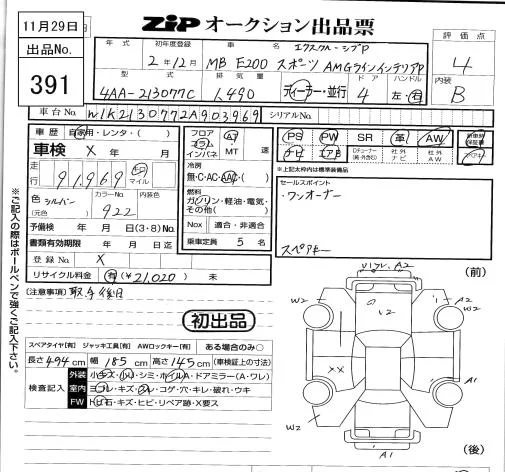 11月29日
出品No.
391
ZIP オークション出品票
年式
初年度登録
車名
エクスクルーシブP
評価点
2年12月
MB E200 スポーツ AMGラインインテリアP
4
型式
排気量
ドア
ハンドル
内装
4AA-213077C
1,490
ディーラー・並行
4
左・右
B
車台No.
W1K2130772A903969
シリアルNo.
車歴
自家用・レンタ・( )
車検
X 年 月
走行
91,969
マイル
色
シルバー
(元色 )
カラーNo.
922
内装色
予備検 年 月 日(3・8)No.
書類有効期限 年 月 日
登録No.
X
リサイクル料金
有(¥21,020) 未
(注意事項)
フロア
フラム
インパネ
AT
MT
速
冷房
無・C・AC・AAC( )
燃料
ガソリン・軽油・電気・
その他( )
Nox
適合・非適合
乗車定員 5 名
PS
PW
SR
革
AW
ナビ
エアB
Dチューナー
(純・外含む)
社外
ナビ
社外
AW
新車時
保証書
スペアキー
※上記太枠内は標準装備品
セールスポイント
・ワンオーナー
スペアキー
初出品
※ご記入の際はボールペンで強くご記入下さい。
スペアタイヤ[有] ジャッキ工具[有] AWロックキー[有] ある場合のみ○
長さ494cm 幅185cm 高さ145cm (車検証上の寸法)
検査記入
外装
小キズ・凹・シミ・ホイルA・ドアミラー(A・ワレ)
室内
ヨゴレ・キズ・スレ・コゲ・穴・キレ・破れ・ウキ
FW
トビ石・キズ・ヒビ・リペア跡・X要ス
(前)
A2
W2
1
A2
W2
12
XX
A1
W2
A1
(後)